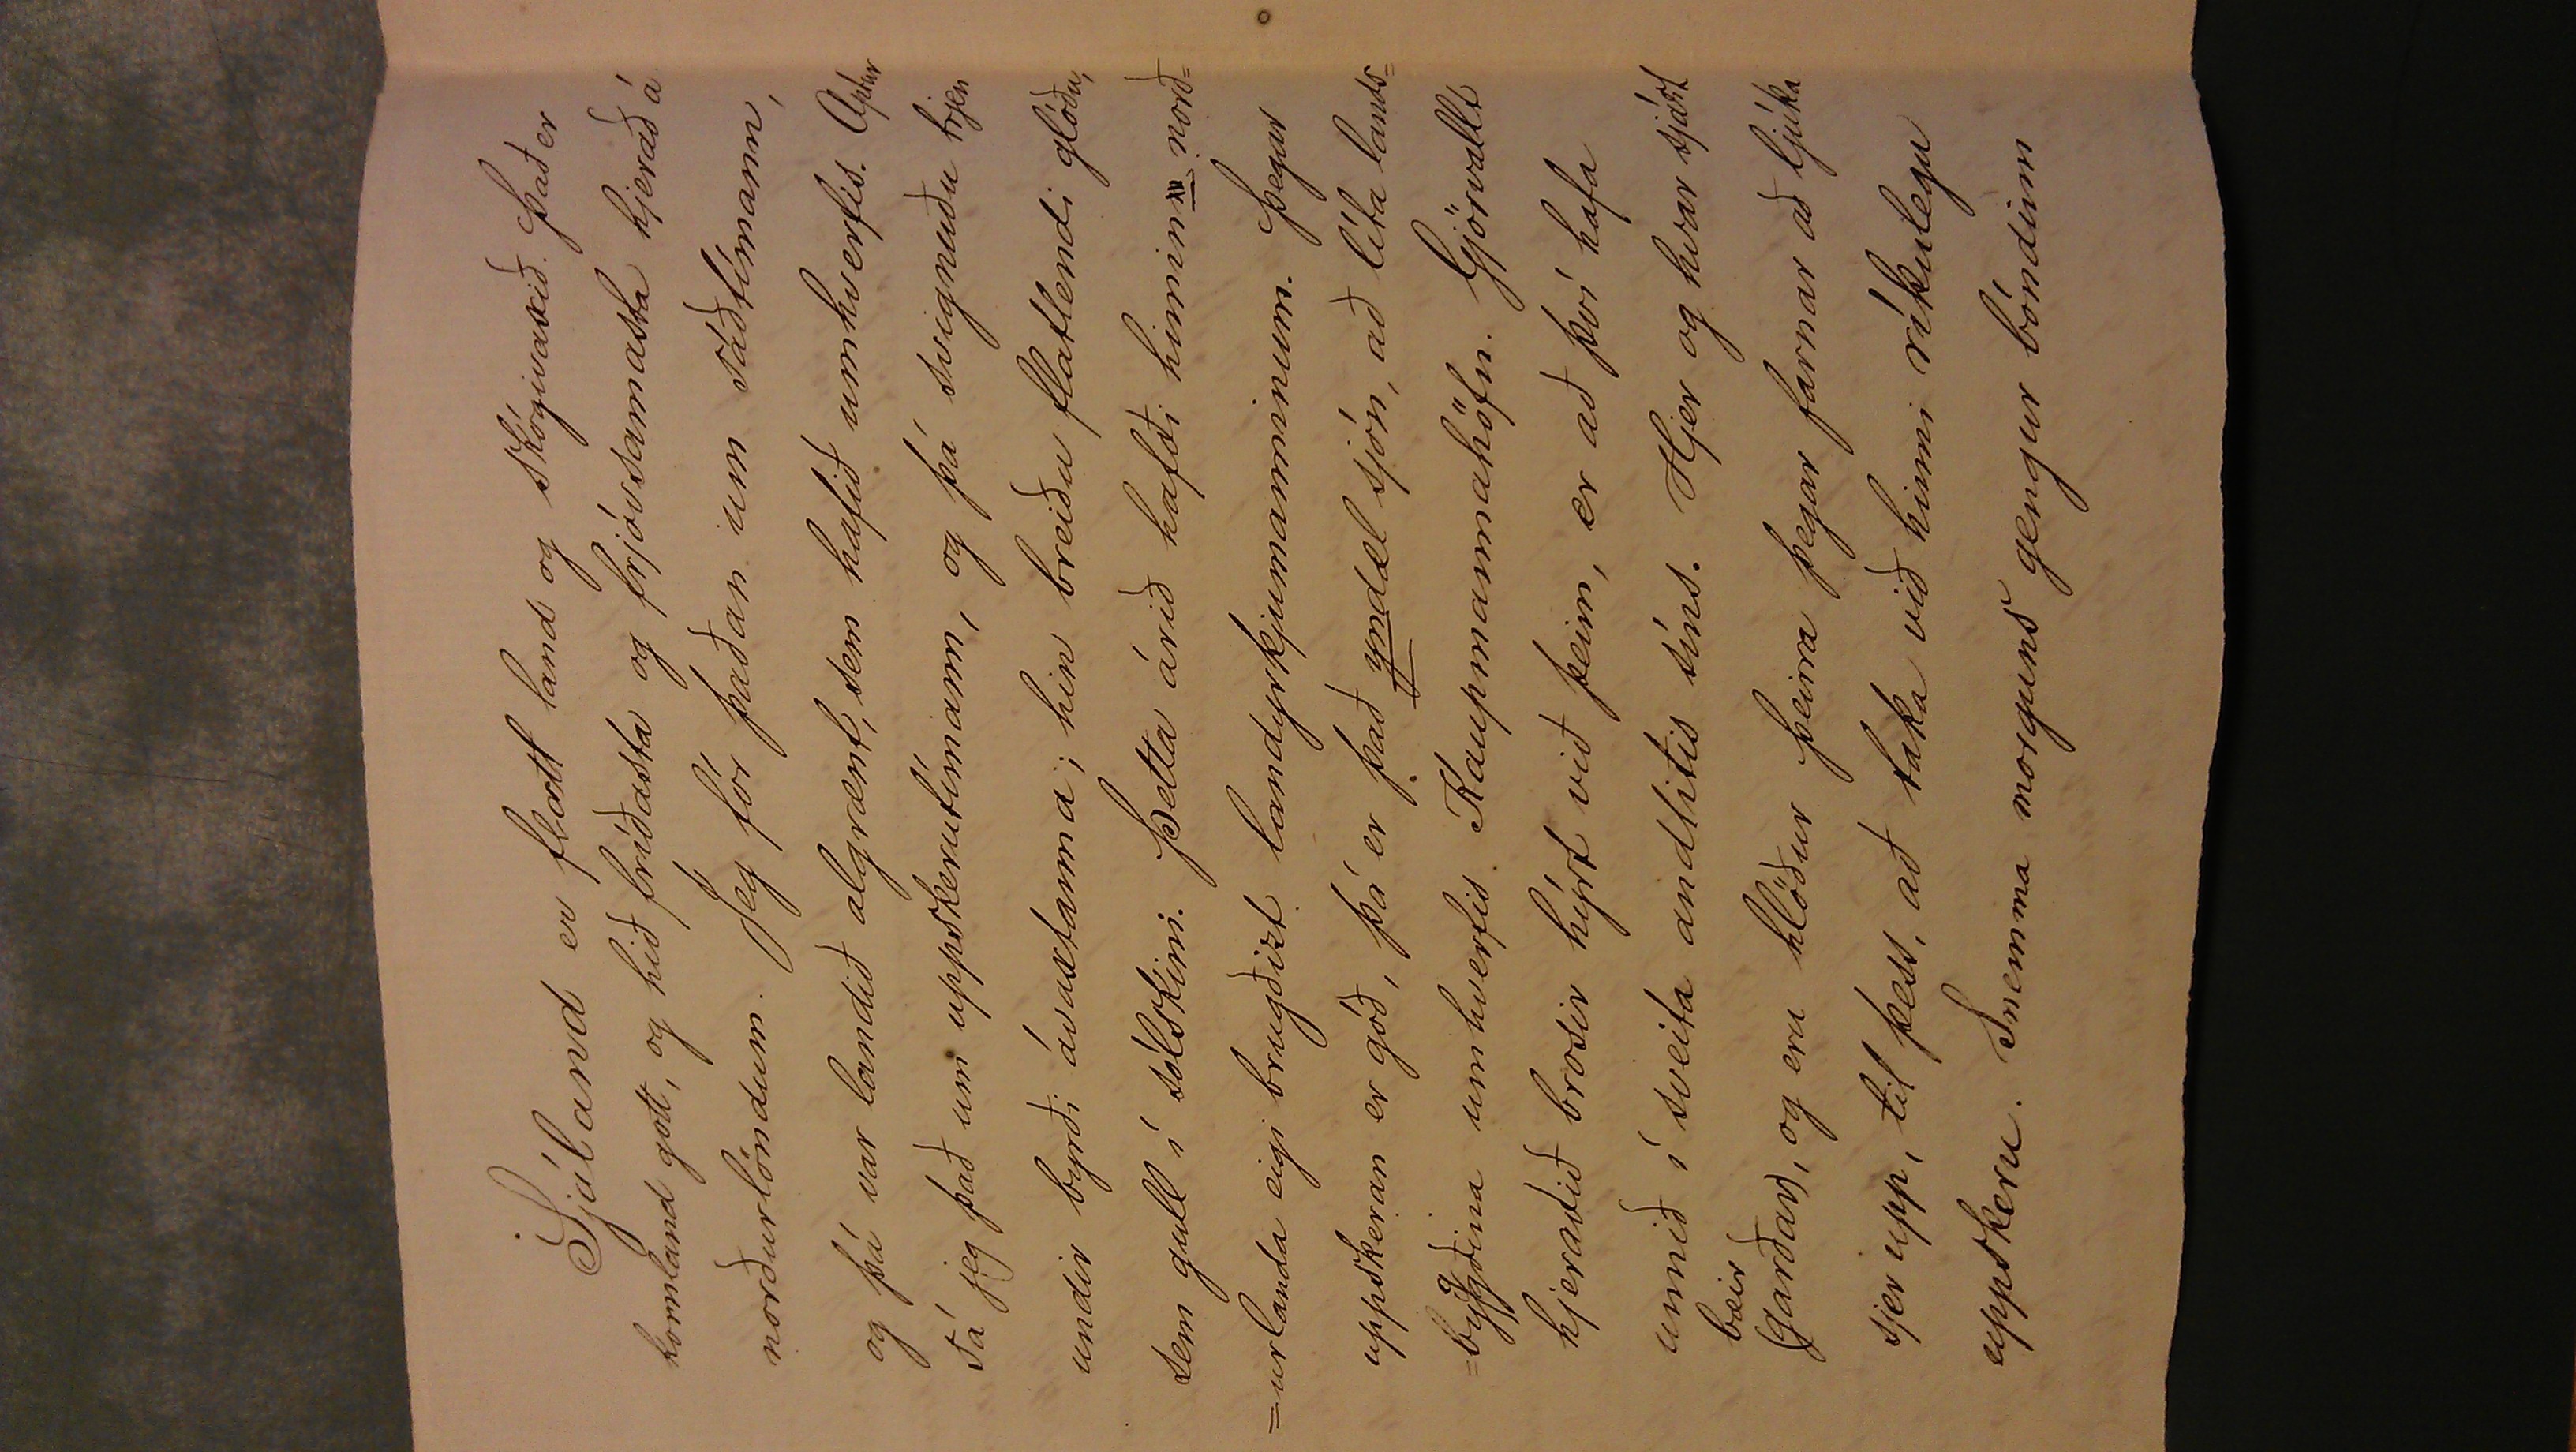 Sjáland er flatt land og skógivaxið. Það er
kornland gott, og hið fríðasta og frjóvsamasta hjerað á
norðurlöndum. Jeg fór þaðan um sáðtímann,
og þá var landið algrænt, sem hafið umhverfis. Aptur
sá jeg það um uppskerutímann, og þá svignuðu trjen
undir byrði ávaxtanna; hin breiðu flatlendi glóðu,
sem gull í sólskini. Þetta árið hafði himinn norð=
=urlanda eigi brugðizt landyrkjumanninum. Þegar
uppskeran er góð, þá er það yndæl sjón, að líta lands=
=byggðina umhverfis Kaupmannahöfn. Gjörvallt
hjeraðið brosir hýrt við þeim, er að því hafa
unnið í sveita andlitis síns. Hjer og hvar sjást
bæir
(garðar), og eru hlöður þeirra þegar farnar að ljúka
sjer upp, til þess, að taka við hinni ríkulegu
uppskeru. Snemma morguns gengur bóndinn